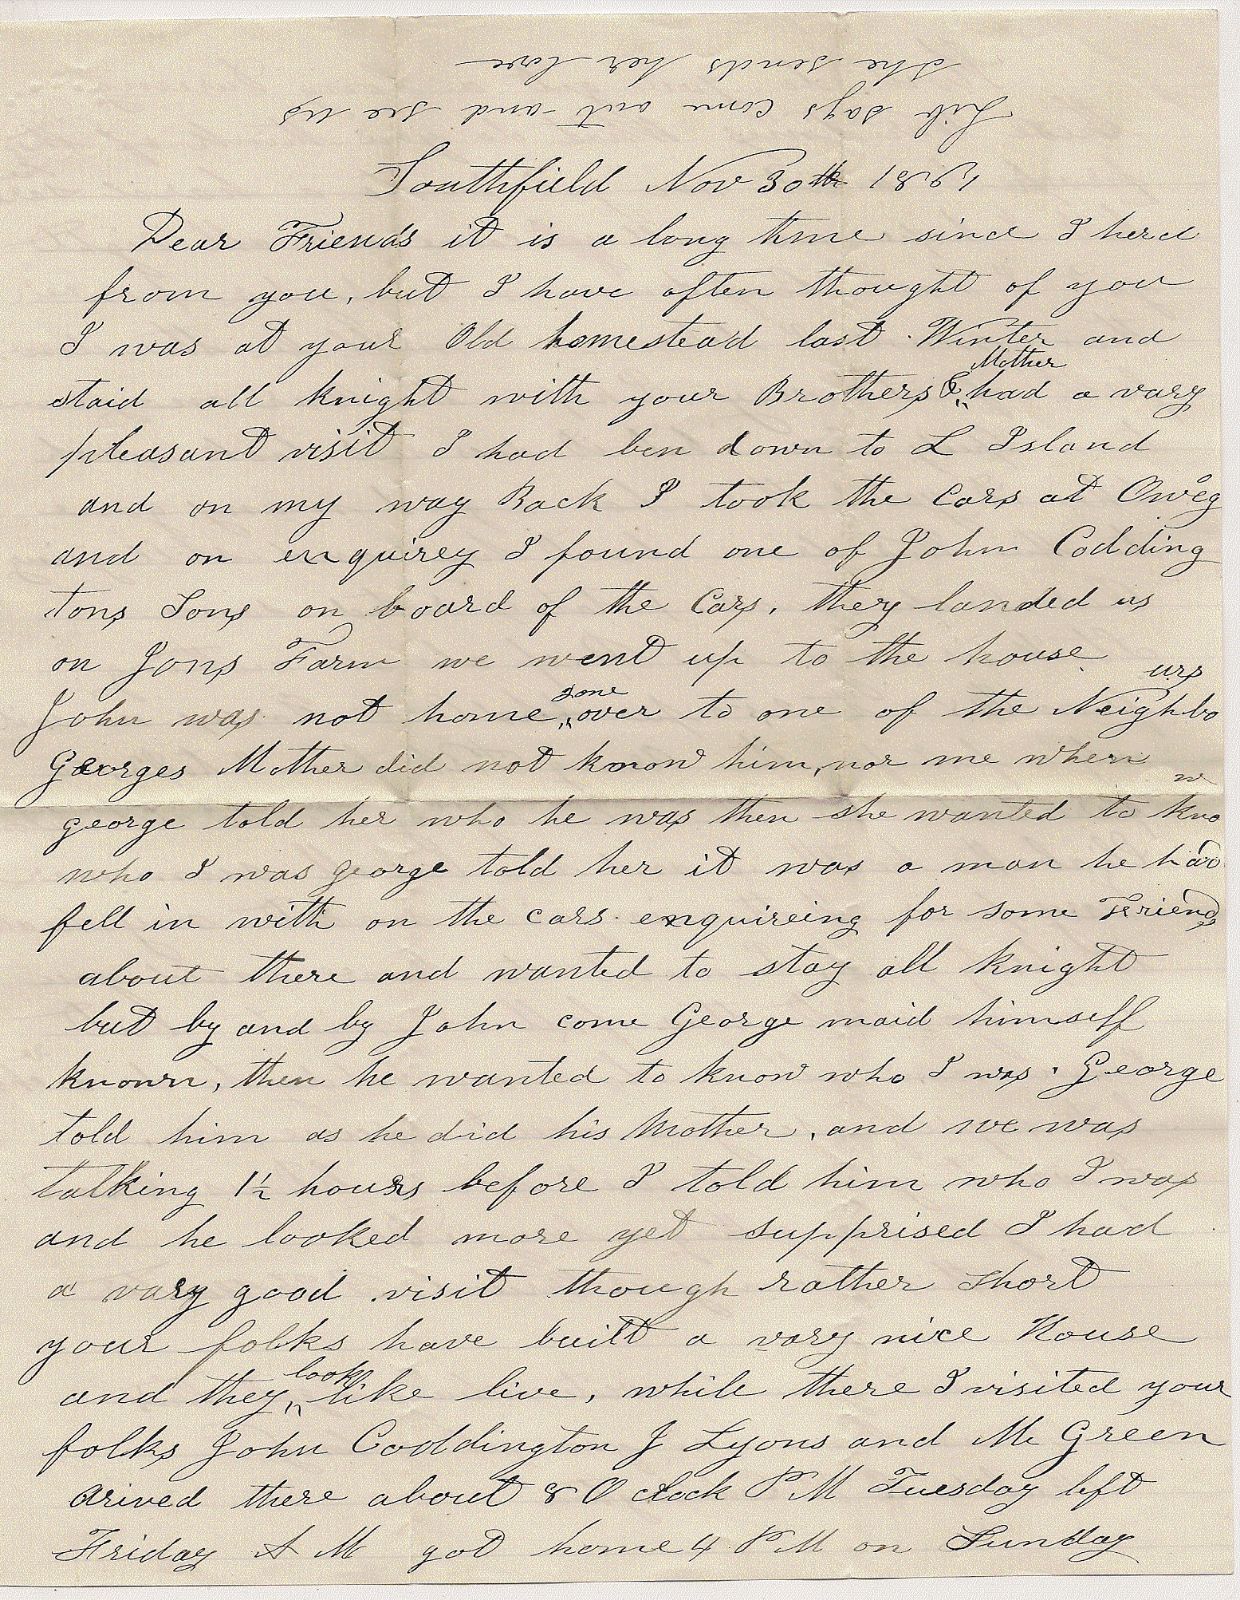 she sends her love
Lib says come out and see us
Southfield Nov 30th 1861
Dear Friends it is a long time since I herd
from you, but I have often thought of you
I was at your Old homestead last Winter and
staid all knight with your Brothers & Mother had a vary
pleasant visit I had ben down to L Island
and on my way Back I took the Cars at Owego
and on enquirey I found one of John Codding
tons Sons on board of the Cars, they landed us
on Jons Farm we went up to the house
John was not home gone over to one of the Neighbours
Georges Mother did not know him, nor me when
george told her who he was then she wanted to know
who I was george told her it was a man he had
fell in with on the cars enquireing for some Friends
about there and wanted to stay all knight
but by and by John come George maid himself
known, then he wanted to know who I was. George
told him as he did his Mother, and we was
talking 1½ hours before I told him who I was
and he looked more yet supprised I had
a vary good visit though rather short
your folks have built a vary nice House
and they look like live, while there I visited your
folks John Coddington J Lyons and M Green
arived there about 8 O clock PM Tuesday left
Friday A M got home 4 PM on Sunday